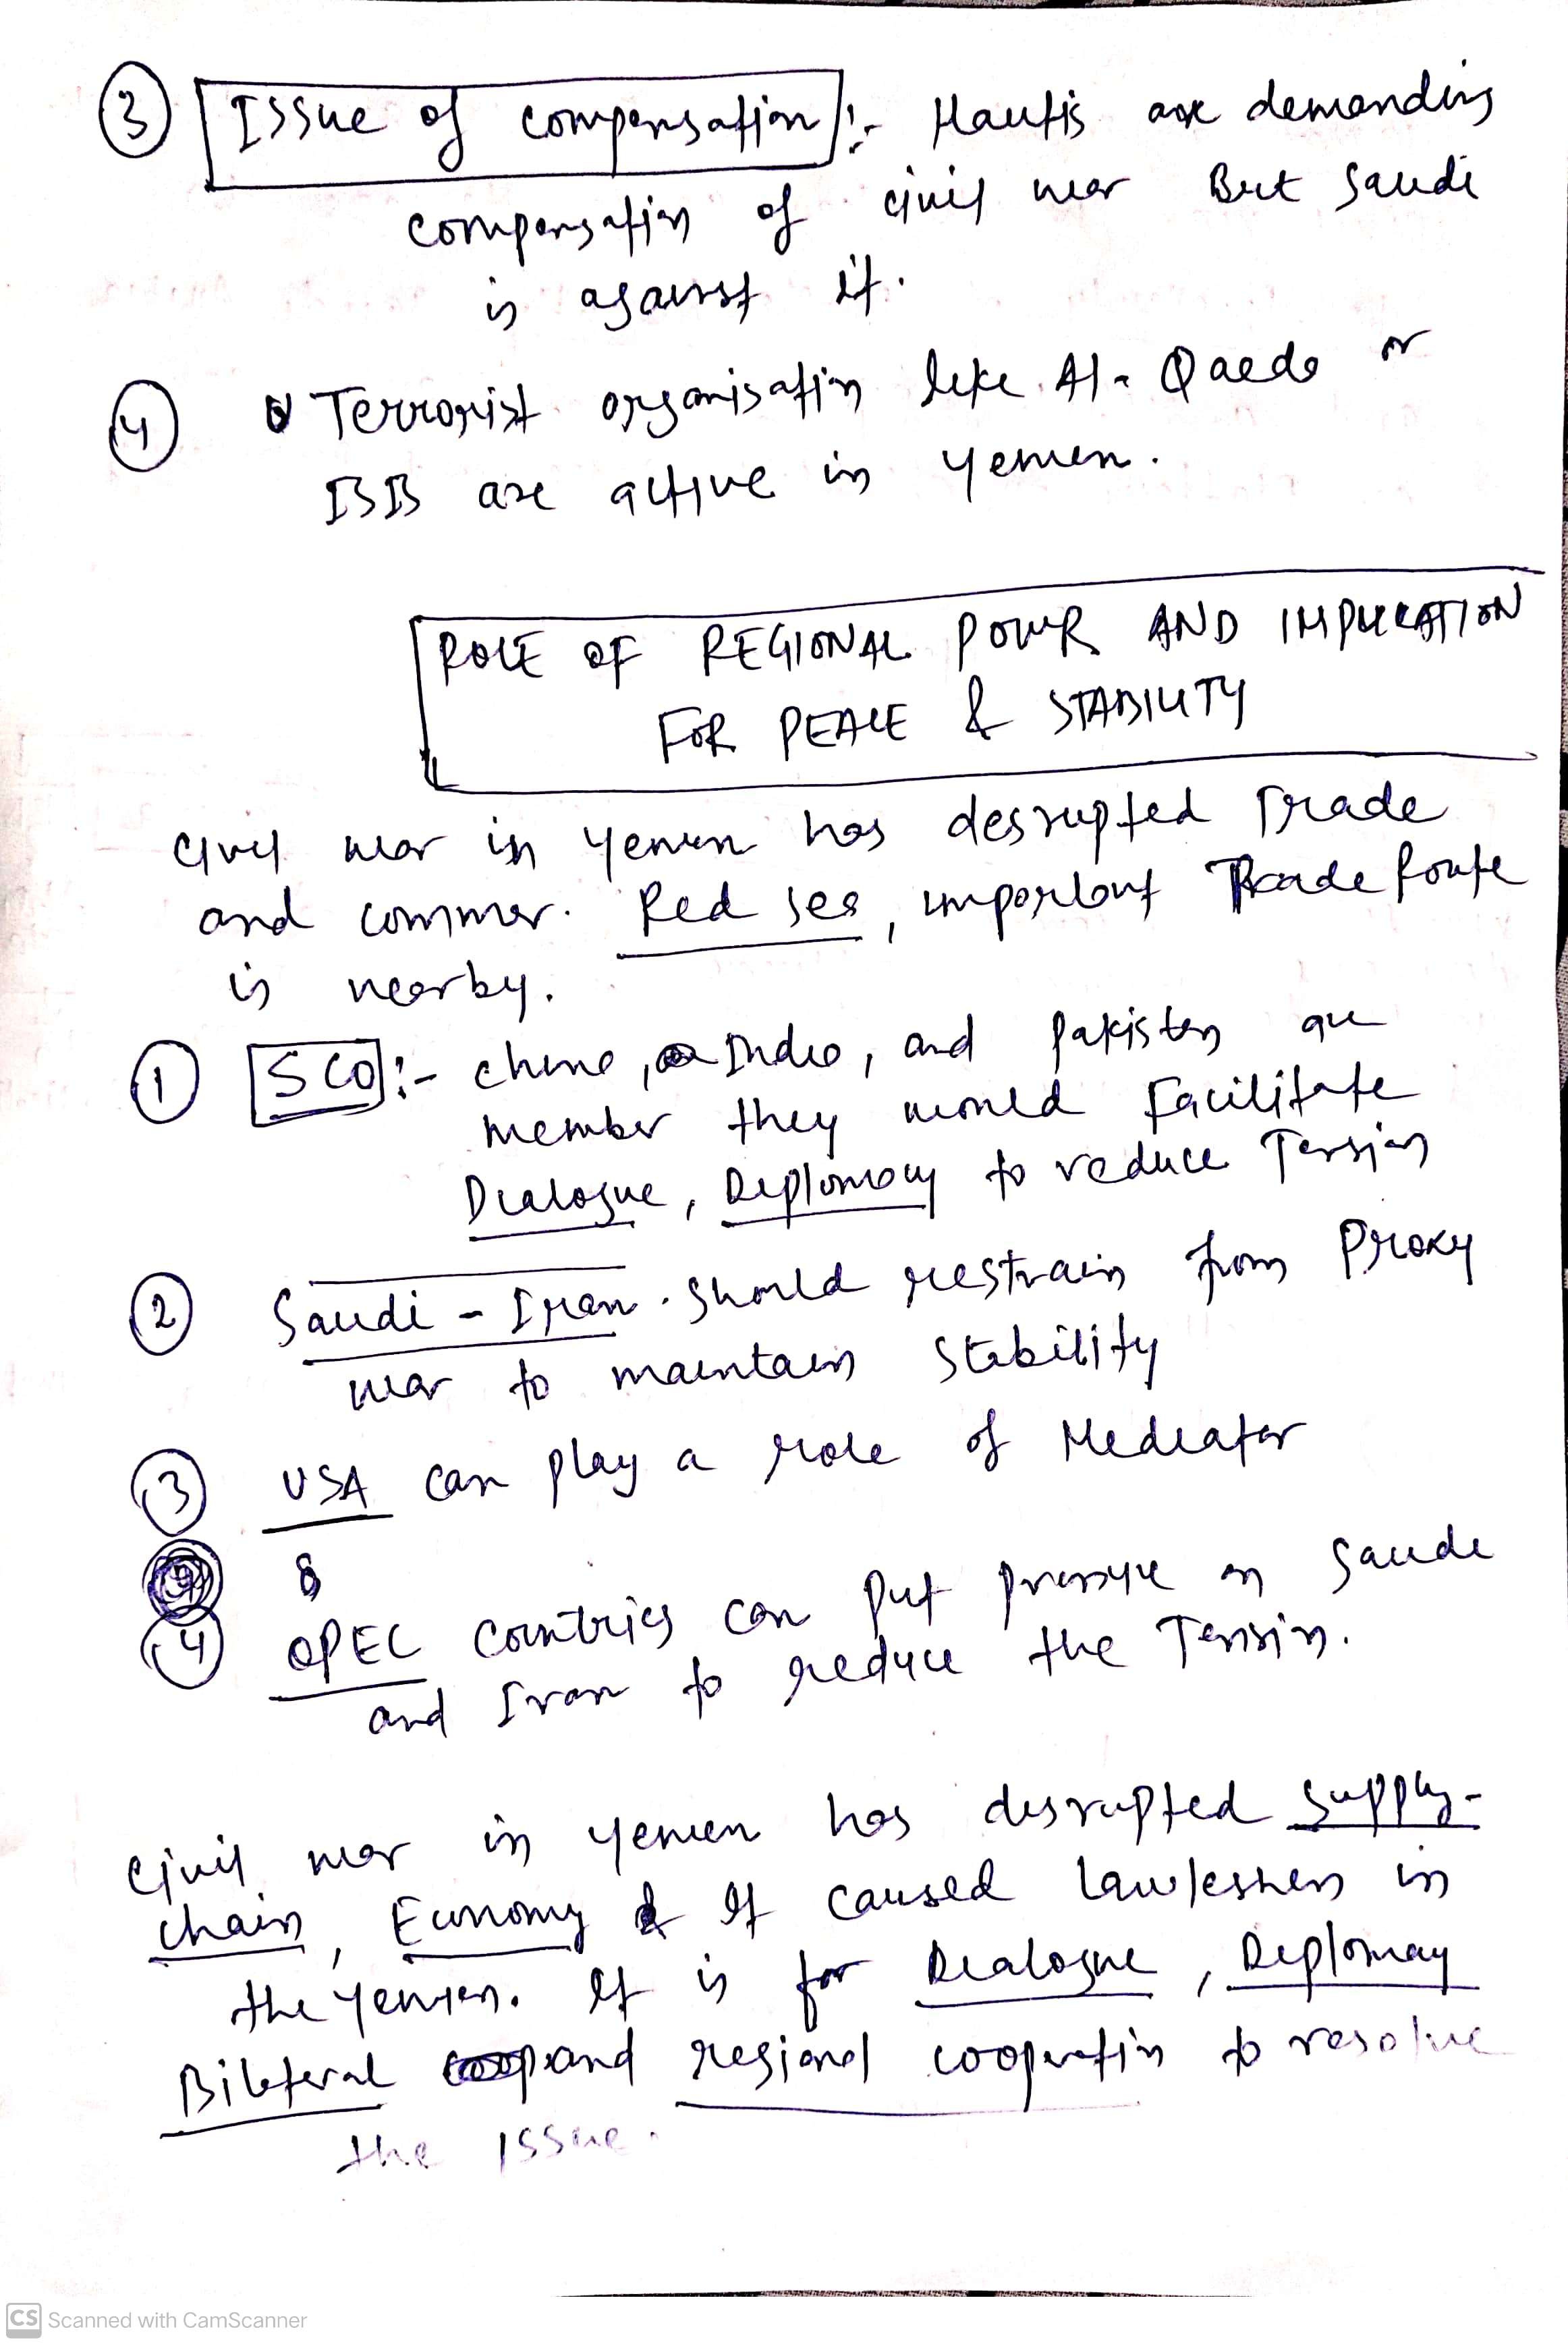 3 Issue of compensation :- Hautis are demanding
compensation of civil war But Saudi
is against it.
4 Terrorist organisation like Al-Qaeda or
ISIS are active in yemen.
ROLE OF REGIONAL POWER AND IMPLICATION
FOR PEACE & STABILITY
civil war in yemen has desrupted Trade
and commer. Red sea, important Trade Route
is nearby.
1 SCO :- china, India, and Pakistan are
member they would Facilitate
Dialogue, Diplomacy to reduce Tension
2 Saudi - Iran. should restrain from Proxy
war to maintain stability
3 USA can play a role of Mediator
4 OPEC countries can put pressure on Saudi
and Iran to reduce the Tension.
civil war in yemen has disrupted supply-
chain, Economy & It caused lawlessness in
the yemen. It is for Dialogue, Diplomay
Bilateral and regional cooperation to resolve
the issue.
CS Scanned with CamScanner